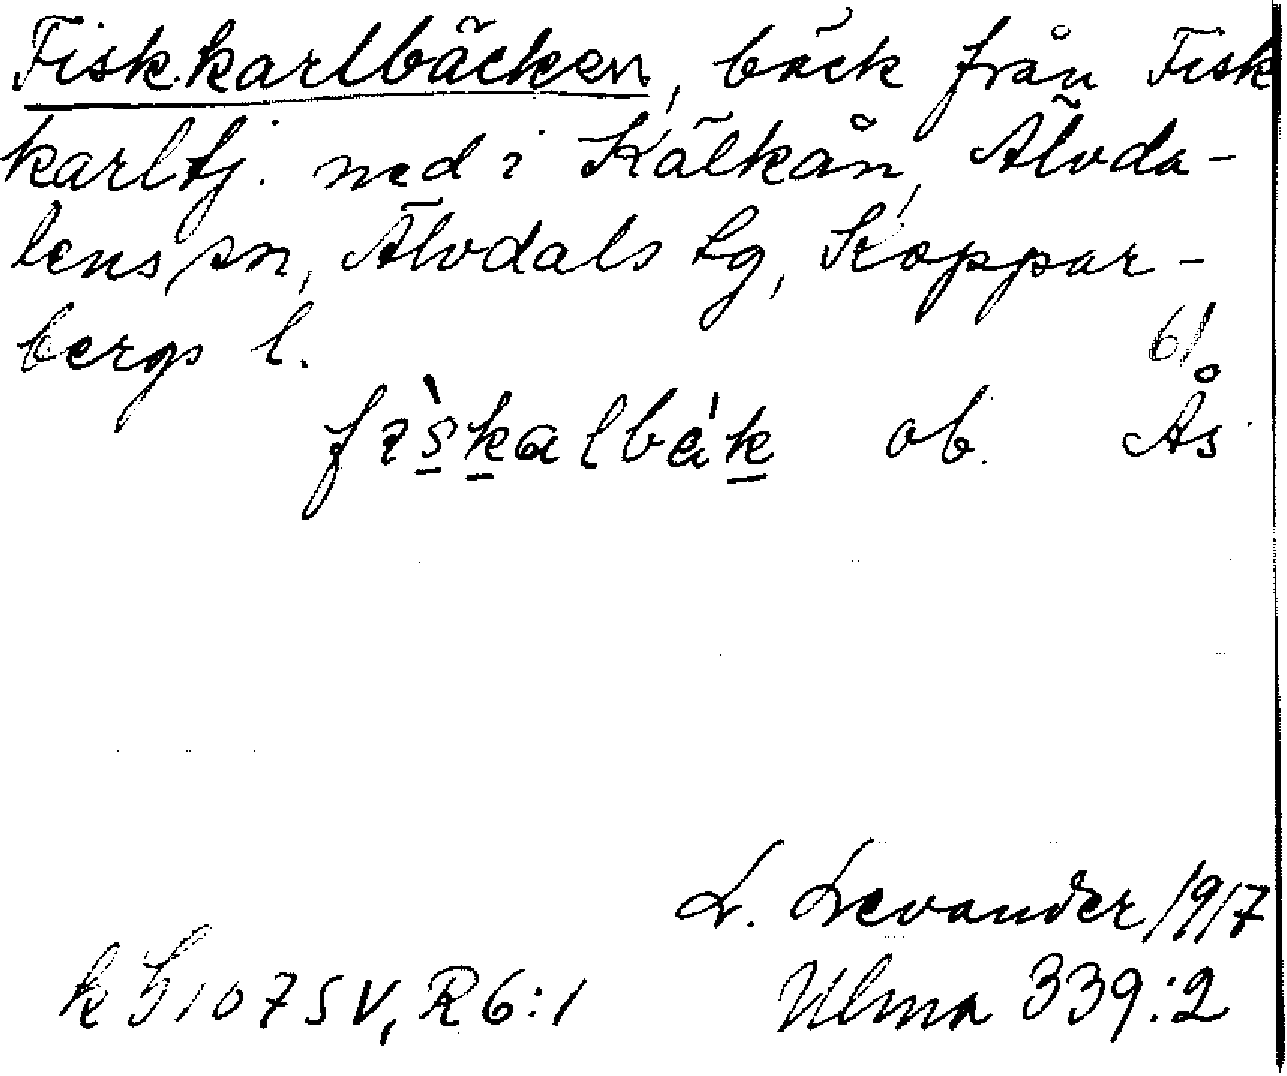 Fiskkarlbäcken, bäck från Fisk
karltj. ned i Kälkån, Älvda-
lens sn, Älvdals tg, Koppar-
bergs l. 61
fiskalbäk ob. Ås
L. Levander 1917
k h 1075 V, R6:1 Ulma 339:2